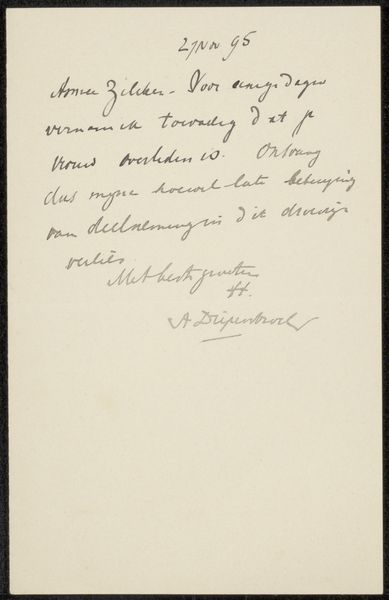 27 Nov 95
Amice Zilcken - Voor eenige dagen
vernam ik toevallig dat je
vrouw overleden is. Ontvang
dus mijne hoewel late betuiging
van deelneming in dit droevige
verlies
Met beste groeten
tt.
A Diepenbrock